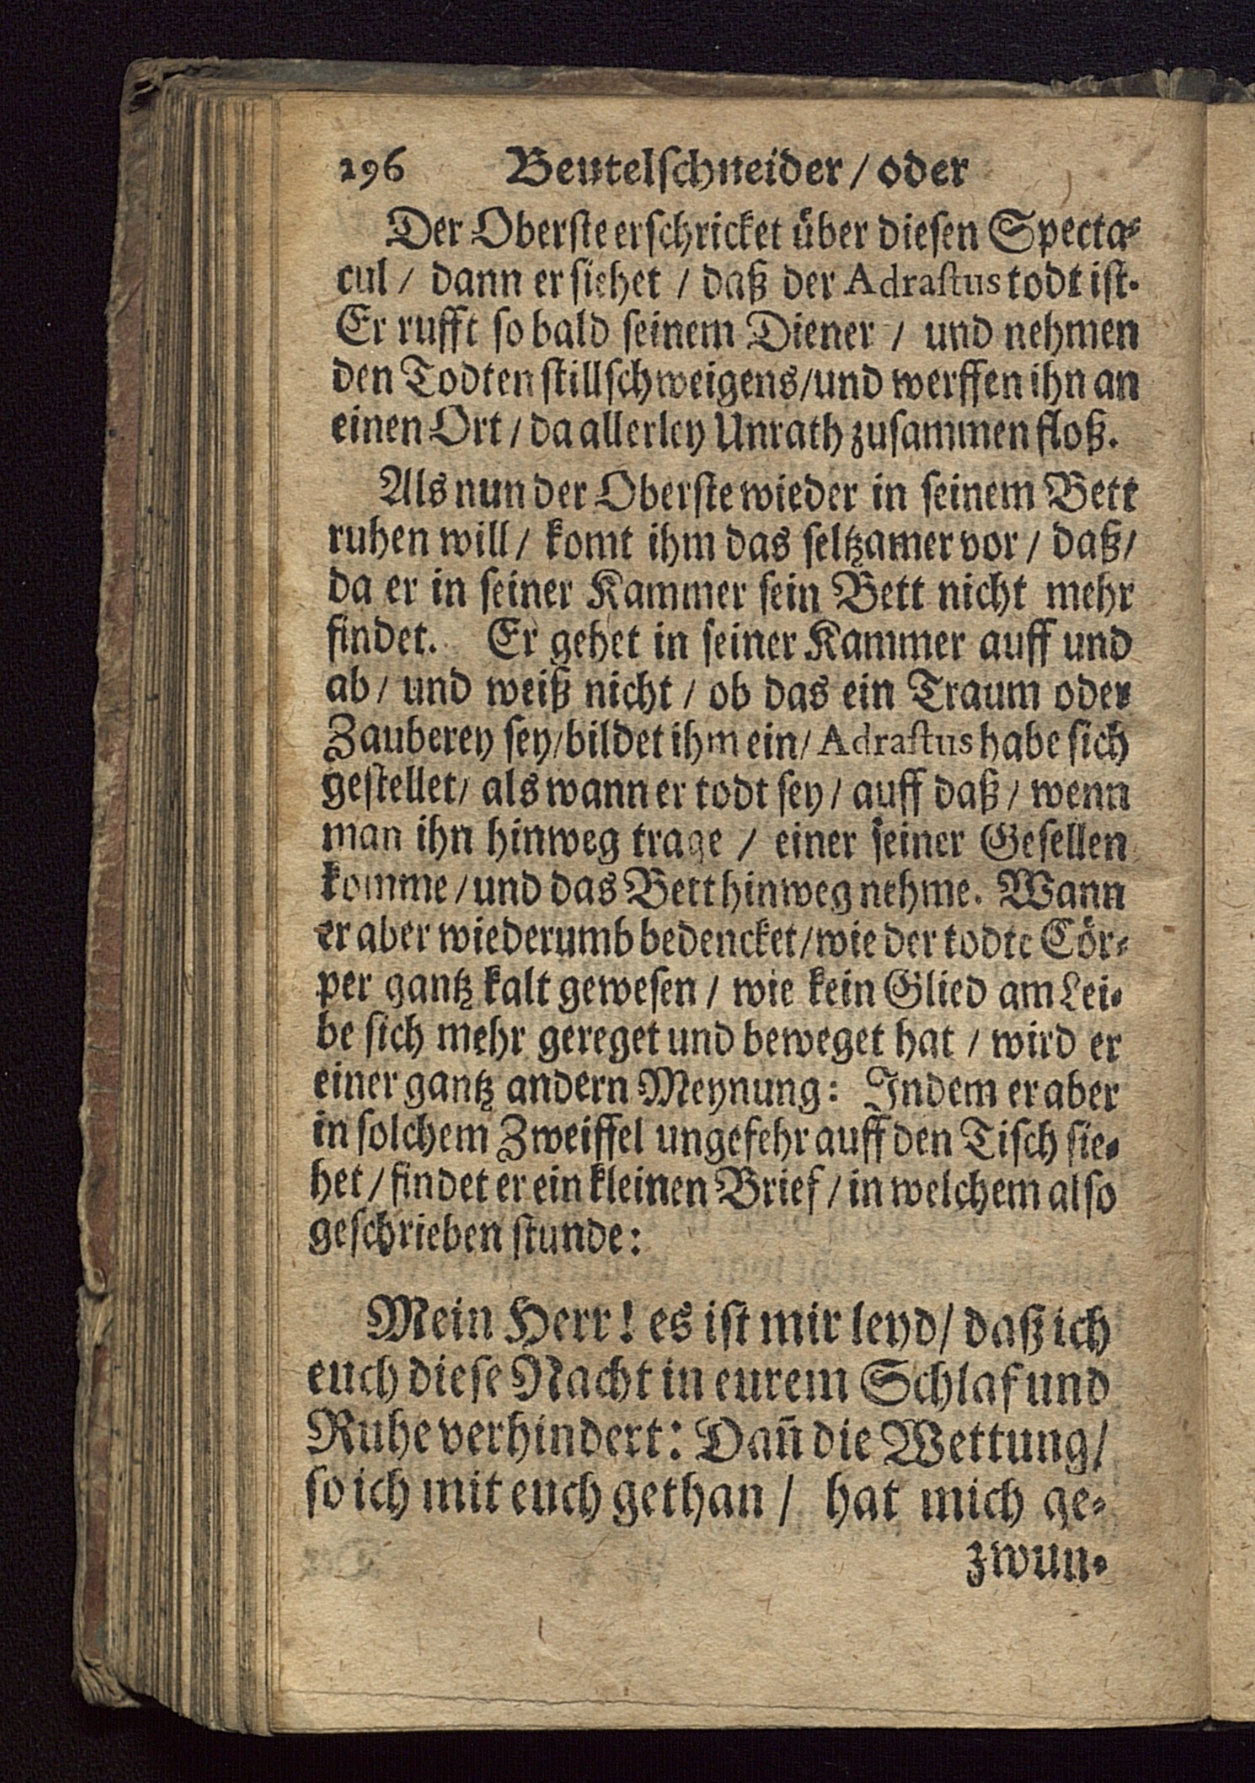 296 Beutelschneider / oder
Der Oberste erschricket über diesen Specta-
cul / dann er siehet / daß der Adrastus todt ist.
Er rufft so bald seinem Diener / und nehmen
den Todten stillschweigens / und werffen ihn an
einen Ort / da allerley Unrath zusammen floß.
Als nun der Oberste wieder in seinem Bett
ruhen will / komt ihm das seltzamer vor / daß /
da er in seiner Kammer sein Bett nicht mehr
findet. Er gehet in seiner Kammer auff und
ab / und weiß nicht / ob das ein Traum oder
Zauberey sey / bildet ihm ein / Adrastus habe sich
gestellet / als wann er todt sey / auff daß / wenn
man ihn hinweg trage / einer seiner Gesellen
komme / und das Bett hinweg nehme. Wann
er aber wiederumb bedencket / wie der todte Cör-
per gantz kalt gewesen / wie kein Glied am Lei-
be sich mehr gereget und beweget hat / wird er
einer gantz andern Meynung: Indem er aber
in solchem Zweiffel ungefehr auff den Tisch sie-
het / findet er ein kleinen Brief / in welchem also
geschrieben stunde:
Mein Herr! es ist mir leyd / daß ich
euch diese Nacht in eurem Schlaf und
Ruhe verhindert: Dañ die Wettung /
so ich mit euch gethan / hat mich ge-
zwun-